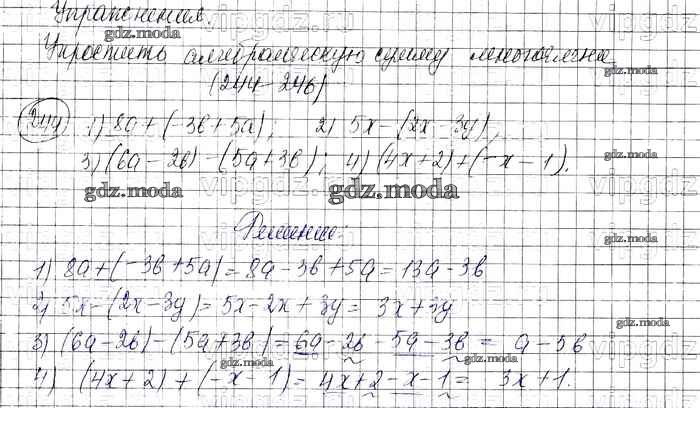 Упражнения
Упростить алгебраическую сумму многочлена
(244-246)
244) 1) 8a+(-3b+5a); 2) 5x-(2x-3y);
3) (6a-2b)-(5a+3b); 4) (4x+2)+(-x-1).
Решение:
1) 8a+(-3b+5a)=8a-3b+5a=13a-3b
2) 5x-(2x-3y)=5x-2x+3y=3x+3y
3) (6a-2b)-(5a+3b)=6a-2b-5a-3b=a-5b
4) (4x+2)+(-x-1)=4x+2-x-1=3x+1.
gdz.moda
gdz.moda
gdz.moda
gdz.moda
gdz.moda
gdz.moda
gdz.moda
gdz.moda
vipgdz.ru